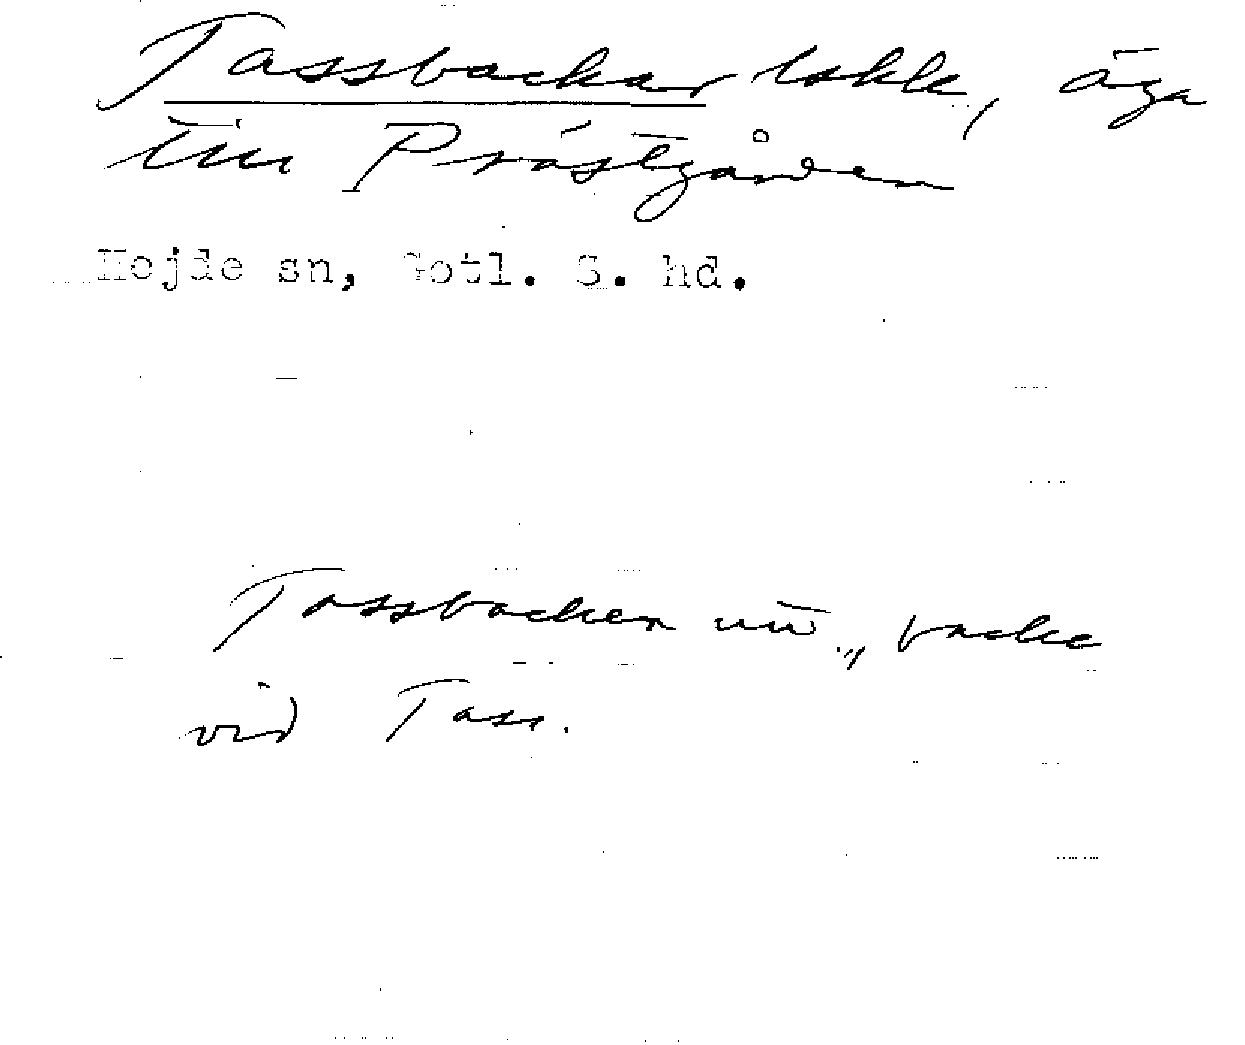 Tassbackar äga
till Prästgården
Hejde sn, Gotl. S. hd.
Tassbacken backe
vid Tass.